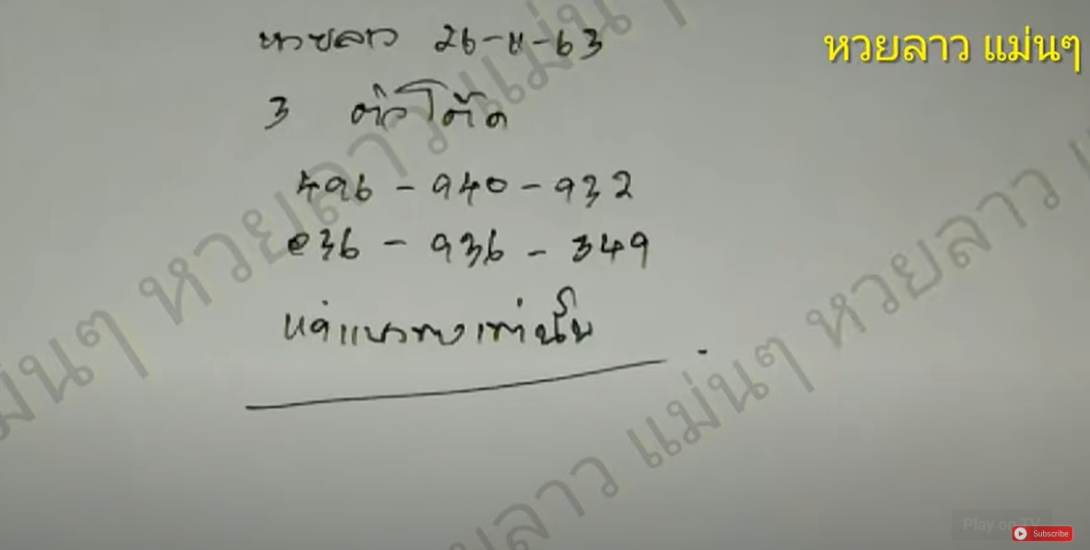 หวยลาว 26-11-63
หวยลาว แม่นๆ
3 ตัวโต๊ด
496 - 940 - 932
036 - 936 - 349
แค่แนวทางเท่านั้น
หวยลาว แม่นๆ
หวยลาว
แม่นๆ หวยลาว
หวยลาว แม่นๆ
Play on TV
Subscribe